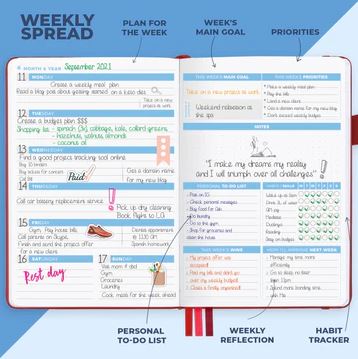 WEEKLY
SPREAD
PLAN FOR
THE WEEK
WEEK'S
MAIN GOAL
PRIORITIES
MONTH & YEAR September 2021
11 MONDAY
Create a weekly meal plan
Read a blog post about getting started on a keto diet
Take on a new
project at work
12 TUESDAY
Create a budget plan $$$
Shopping list - spinach, cabbage, kale, collard greens,
- hazelnuts, walnuts, almonds
- coconut oil
13 WEDNESDAY
Find a good project tracking tool online
Buy 10 binders
Buy weights and check budget
Call Bill
Paid
Get a domain name
for my new blog
14 THURSDAY
Call car battery replacement service
Pick up dry cleaning
Book flights to L.A.
15 FRIDAY
Gym, Pay house bills,
Call parents on Skype,
Finish and send the project offer
for a new client
Dentist appointment
Spanish homework
16 SATURDAY
Rest day
17 SUNDAY
Visit mom & dad
Gym
Laundry
Cook meals for the week ahead
THIS WEEK'S MAIN GOAL
Take on a new project at work
Weekend relaxation at
the spa
THIS WEEK'S PRIORITIES
Make a weekly meal plan
Pay the bills
Land a new client
Get a domain name for my new blog
Don't skip weights
NOTES
"I make my dreams my reality
and I will triumph over all challenges"
PERSONAL TO-DO LIST
Check personal messages
Buy food for
Do laundry
Go to the gym
Shop for groceries and
clean the house
HABITS / GOALS M T W T F S S
Wake up at 6am
Drink 2l of water
Gym
Meditate
Duolingo
Reading
Stay on budget
THIS WEEK'S WINS
My project offer was
accepted!
Paid my bills and didn't go
over my weekly budget!
Closet is finally organized!
Manage my time more
efficiently
Go to sleep no later
than 11pm
Spend more bonding time
with Mia
PERSONAL
TO-DO LIST
WEEKLY
REFLECTION
HABIT
TRACKER